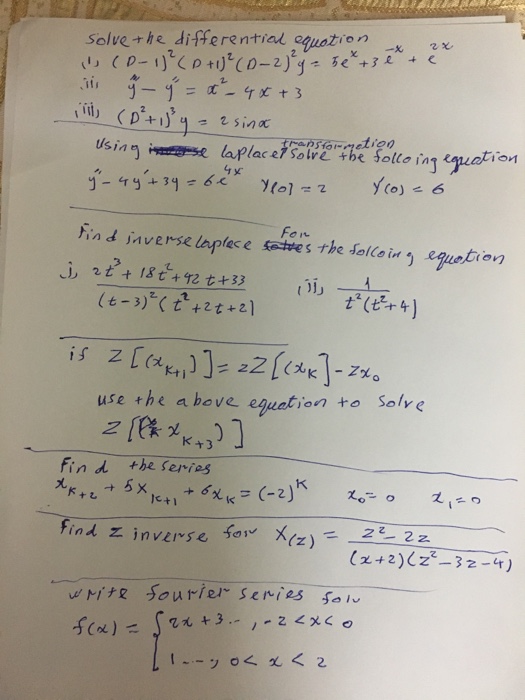 solve the differential equation
(i) (D-1)²(D+1)²(D-2)²y = 5eˣ+3e⁻ˣ + e²ˣ
ii ÿ - y'' = x² - 4x + 3
iii) (D²+1)³y = 2 sinx
Using laplace transformation solve the folloing equation
y'' - 4y' + 3y = 6e⁴ˣ y(0) = 2 y'(0) = 6
Find inverse laplece For the folloing equation
i, 2t³ + 18t² + 42t + 33 / (t-3)²(t²+2t+2) , ii, 1 / t²(t²+4)
if Z[(xₖ₊₁)] = zZ[(xₖ] - Zx₀
use the above equation to solve
Z[(xₖ₊₃)]
Find the series
xₖ₊₂ + 5xₖ₊₁ + 6xₖ = (-2)ᵏ x₀ = 0 x₁ = 0
Find z inverse for X(z) = z² - 2z / (x+2)(z² - 3z - 4)
write fourier series for
f(x) = { 2x + 3 -- , -2 < x < 0
1 --- , 0 < x < 2